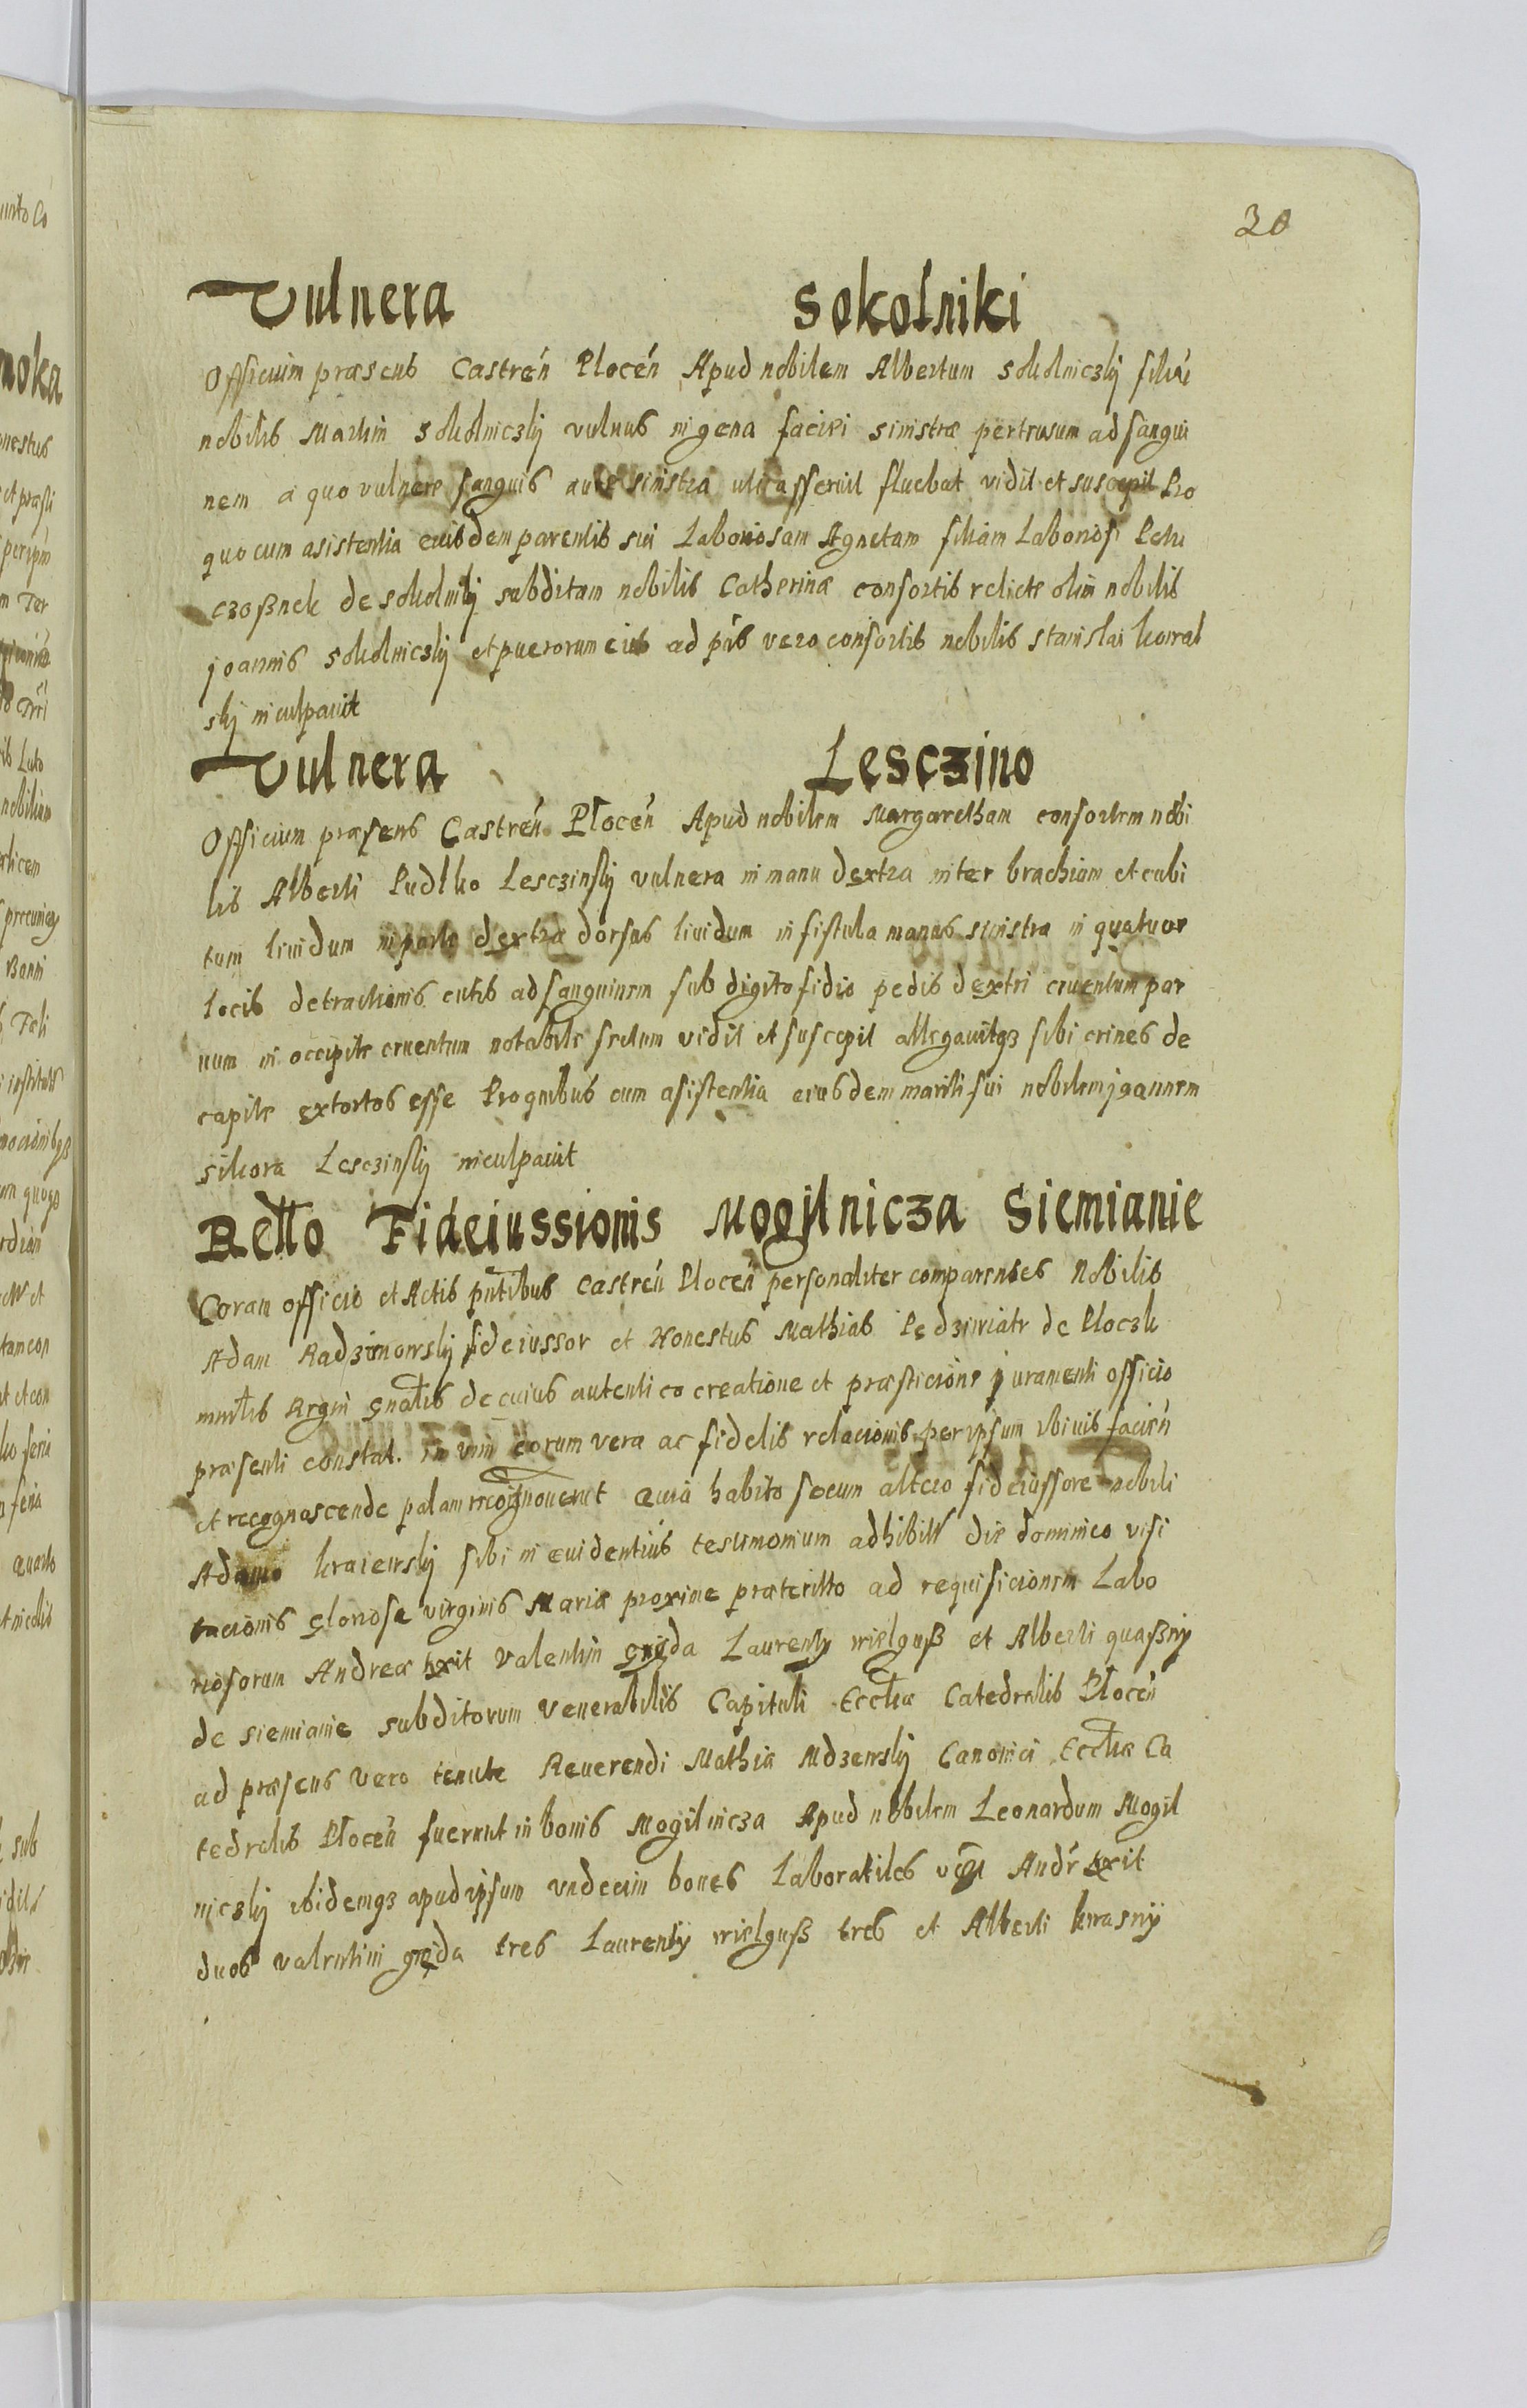 30
Vulnera Sokolniki
Officium præsens Castreń Płoceń Apud nobilem Albertum Sokolniczkij filiũ
nobilis Martini Sokolniczkij vulnus in gena faciei sinistræ pertrusum ad sangui
nem a quo vulnere sanguis aure sinistra uti asseruit fluebat vidit et suscepit Pro
quo cum asistentia eiusdem parentis sui Laboriosam Agnetam filiam Laboriosi Petri
czoßnek de sokolniki subditam nobilis Catherinæ consortis relictæ olim nobilis
joannis sokolniczkij et puerorum eius ad pñs vero consortis nobilis stanislai korzal
skij inculpavit
Vulnera Lesczino
Officium præsens Castreń Płoceń Apud nobilem Margaretham consortem nobi
lis Alberti Pudlko Lesczinskij vulnera in manu dextra inter brachium et cubi
tum liuidum in parte dextra dorsus liuidum in fistula manus sinistra in quatuor
locis detractionis cutis ad sanguinem sub digito fidio pedis dextri cruentum par
uum in occipite cruentum notabile sectum vidit et suscepit allegavitqз sibi crines de
capite extortos esse Pro quibus cum asistentia eiusdem mariti sui nobilem joannem
sikora Lesczinskij inculpavit
Rełło Fideiussionis Mogilnicza Siemianie
Coram officio et Actis pñtibus castreń Płoceń personaliter comparentes Nobilis
Adam Radzimowskij fideiussor et Honestus Mathias Pędziwiatr de Ploczk
minłis Regni gnałis de cuius autentico creatione et præsticione juramenti officio
præsenti constat. in vim eorum vera ac fidelis relacionis per ipsum ibi uis facień
et recognoscende palam recognouerut Quia habito secum altero fideiussore nobili
Adamo kraiewskij sibi in euidentius testimonium adhibit̃ die dominico visi
tacionis gloriosæ virginis Mariæ proxime præteritto ad requisicionem Labo
riosorum Andreæ kxit Valentin gręda Laurentij wielguß et Alberti quaßnij
de siemianie subditorum Venerabilis Capituli Eccłiæ Catedralis Płoceń
ad præsens vero tenutæ Reuerendi Mathiæ Mdzewskij Canonici Eccłiæ Ca
tedralis Płoceń fuerunt in bonis Mogilnicza Apud nobilem Leonardum Mogil
niczkij ibidemqз apud ipsum vndecim boues Laboratiles Andr̃ kxit
duos valentini gręda tres Laurentij wielguß tres et Alberti kwasnij